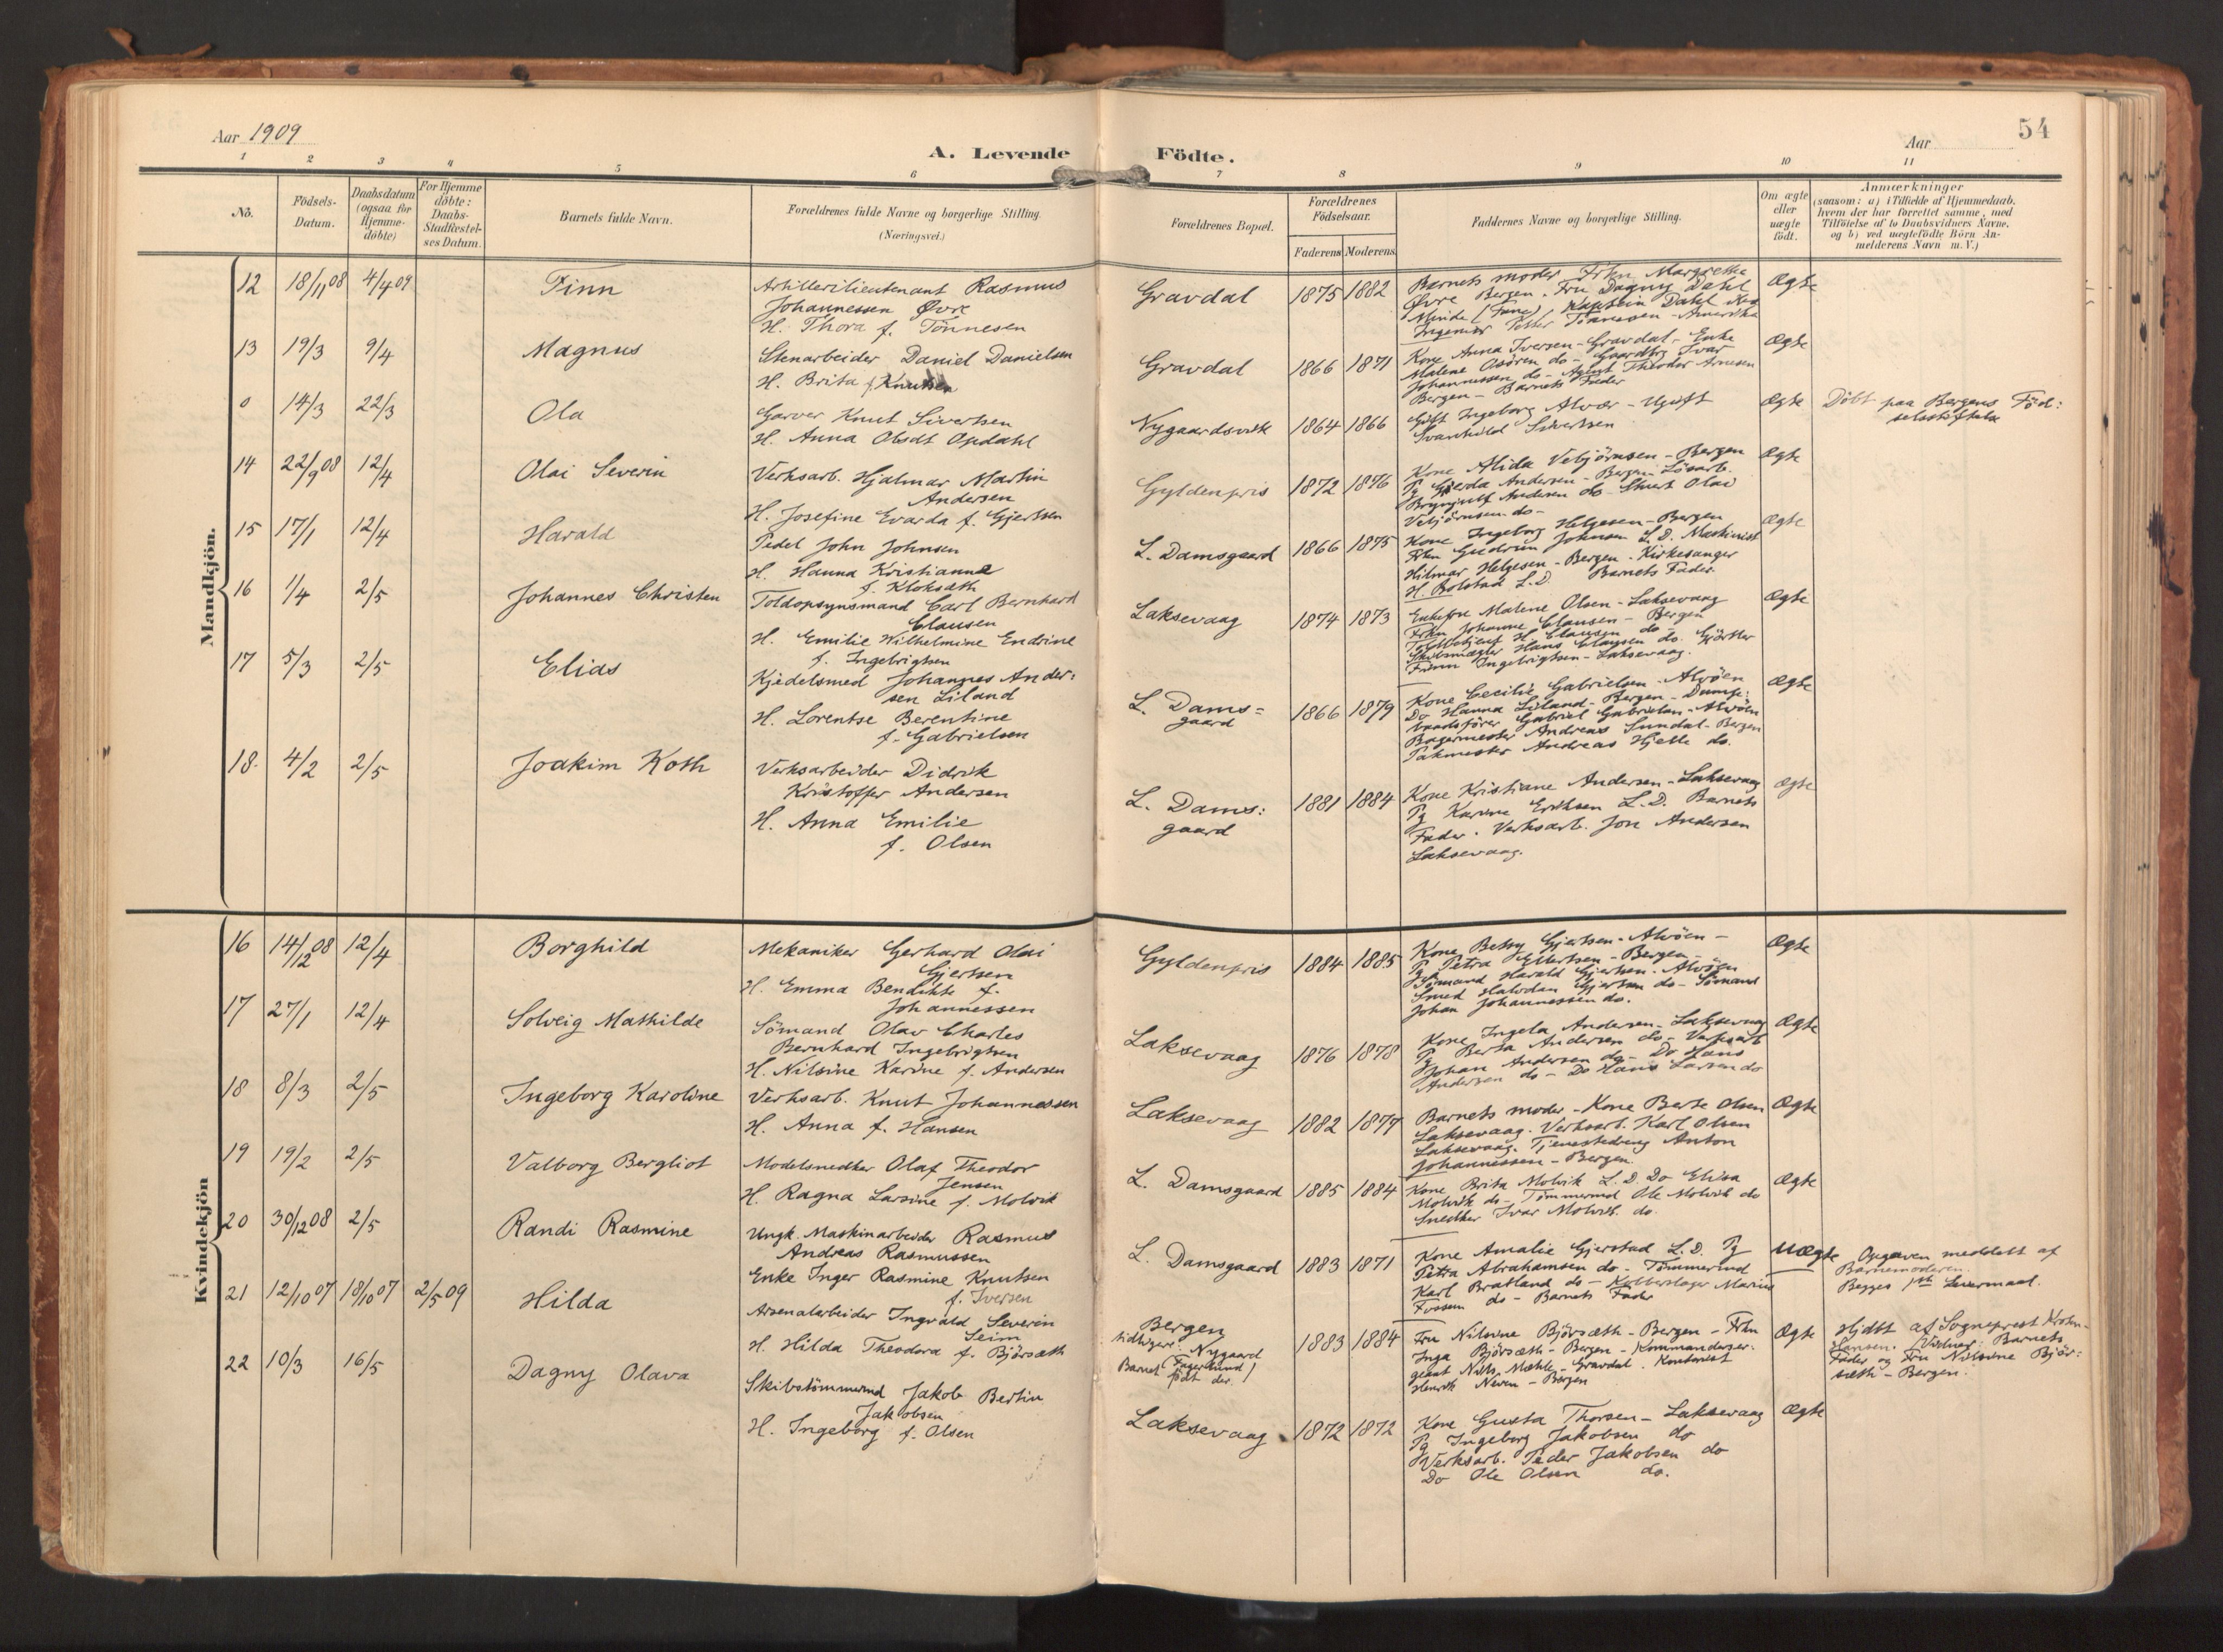 Aar 1909
A. Levende Födte.
Aar
54
1 2 3 4 5 6 7 8 9 10 11
No.
Födsels-Datum.
Daabsdatum (ogsaa for Hjemme-döbte)
For Hjemme döbte: Daabs-Stadfæstel-ses Datum.
Barnets fulde Navn.
Forældrenes fulde Navne og borgerlige Stilling.
(Næringsvei.)
Forældrenes Bopæl.
Forældrenes Födselsaar.
Faderens Moderens
Faddernes Navne og borgerlige Stilling.
Om ægte eller uægte födt.
Anmærkninger
(saasom: a) i Tilfælde af Hjemmedaab,
hvem der har forrettet samme, med
Tilföielse af to Daabsvidners Navne,
og b) ved uægtefödte Börn An-
melderens Navn m. V.)
Mandkjön.
12 18/11 08 4/4 09 Finn
Artillerilieutenant Rasmus
Johannessen Øvre
H. Thora f. Tönnesen
Gravdal 1875 1882
Barnets moder Frkn Margrethe
Øvre Bergen. Fru Dagny Dahl
Minde (Fane) Kaptein Dahl
Ingeniör Petter Tönnesen - Amerika
Ægte
13 19/3 9/4 Magnus
Stenarbeider Daniel Danielsen
H. Brita f. Knutsen
Gravdal 1866 1871
Kone Anna Iversen - Gravdal - Enke
Malene Osören do - Gaardbrg Ivar
Johannessen do - Agent Theodor Arnesen
Bergen - Barnets Fader
Ægte
0 14/3 22/3 Ola
Garver Knut Sivertsen
H. Anna Olsdt Opdahl
Nygaardsvik 1864 1866
Gift Ingeborg Alvær - Ugift
Svanhild Sivertsen
Ægte
Döbt paa Bergens Föd:
selsstiftelse
14 22/9 08 12/4 Olai Severin
Verksarb. Hjalmar Martin
Andersen
H. Josefine Evarda f. Gjertsen
Gyldenpris 1872 1876
Kone Alida Vebjörnsen - Bergen
Pg Gjerda Andersen - Bergen - Lösarb.
Brynjulf Andersen do - Stuert Olai
Vebjörnsen do -
Ægte
15 17/1 12/4 Harald
Pedel John Johnsen
H. Hanna Kristianne
f. Kloksæth
L. Damsgaard 1866 1875
Kone Ingeborg Helgesen - Bergen
Frkn Gudrun Johnsen L.D. Maskinist
Hilmar Helgesen - Bergen. Kirkesanger
H. Bolstad L.D. Barnets Fader.
Ægte
16 1/4 2/5 Johannes Christen
Toldopsynsmand Carl Bernhard
Clausen
H. Emilie Wilhelmine Endrine
f. Ingebrigtsen
Laksevaag 1874 1873
Enkefru Malene Olsen - Laksevaag
Frkn Johanne Clausen - Bergen
Toldbetjent H. Clausen do -
Skibsmægler Hans Clausen do. Gjörtler
Finn Ingebrigtsen - Laksevaag.
Ægte
17 5/3 2/5 Elias
Kjedelsmed Johannes Ander:
sen Liland
H. Lorentse Berentine
f. Gabrielsen
L. Dams=
gaard
1866 1879
Kone Cecilie Gabrielsen - Alvöen
Do Hanna Liland - Bergen - Dampf:
baadsförer Gabriel Gabrielsen - Alvöen
Bagermester Andreas Sundal - Bergen
Takmester Andreas Hjelle do.
Ægte
18. 4/2 2/5 Joakim Koth
Verksarbeider Didrik
Kristoffer Andersen
H. Anna Emilie
f. Olsen
L. Dams:
gaard
1881 1884
Kone Kristiane Andersen - Laksevaag
Pg Karine Eriksen L.D. Barnets
Fader. Verksarb. Jon Andersen
Laksevaag.
Ægte
Kvindekjön
16 14/12 08 12/4 Borghild
Mekaniker Gerhard Olai
Gjertsen
H. Emma Bendikte f.
Johannessen
Gyldenpris 1884 1885
Kone Betsy Gjertsen - Alvöen -
Pg Petra Ellertsen - Bergen -
Sömand Harald Gjertsen. Alvöen
Smed Halvdan Gjertsen do - Sömand
Johan Johannessen do.
Ægte
17 27/1 12/4 Solveig Mathilde
Sömand Olav Charles
Bernhard Ingebrigtsen
H. Nilsine Karine f. Andersen
Laksevaag 1876 1878
Kone Ingela Andersen - Laksevaag
Pg Berta Andersen do - Verksarb
Johan Andersen do - Do Hans
Andersen do - Do Hans Larsen do
Ægte
18 8/3 2/5 Ingeborg Karoline
Verksarb. Knut Johannessen
H. Anna f. Hansen
Laksevaag 1882 1877
Barnets moder - Kone Berte Olsen
Laksevaag. Verksarb. Karl Olsen
Laksevaag. Tjenestedreng Anton
Johannessen - Bergen.
Ægte
19 19/2 2/5 Valborg Bergliot
Modelsnedker Olaf Theodor
Jensen
H. Ragna Larsine f. Molvik
L. Damsgaard 1885 1884
Kone Brita Molvik L.D. Do Elisa
Molvik do - Tömmermd Ole Molvik do
Snedker Ivar Molvik. do.
Ægte
20 30/12 08 2/5 Randi Rasmine
Ungk. Maskinarbeider Rasmus
Andreas Rasmussen
Enke Inger Rasmine Knutsen
f. Iversen
L. Damsgaard 1883 1871
Kone Amalie Gjerstad L.D. Pg
Petra Abrahamsen do - Tömmermd
Karl Bratland do - Kobberslager Marius
Fossem do - Barnets Fader
Uægte
Opgaven meddelt af
Barnemoderen.
Begges 1ste Leiermaal.
21 12/10 07 18/10 07 2/5 09 Hilda
Arsenalarbeider Ingvald Severin
Seim
H. Hilda Theodora f. Björsæth
Bergen
tidligere Nygaard
(Fagerlund)
Barnet födt der.
1883 1884
Fru Nilsine Björsæth - Bergen - Frkn
Inga Björsæth - Bergen - Kommandérser.
geant Nils Mæhle - Gravdal. Kontorist
Henrik Neven - Bergen
Ægte
Hjdöt af Sogneprest Krohn-
Hansen. Vidner: Barnets
Fader og Fru Nilsine Björ:
sæth - Bergen.
22 10/3 16/5 Dagny Olava
Skibstömmermd Jakob Bertin
Jakobsen
H. Ingeborg f. Olsen
Laksevaag 1872 1872
Kone Gusta Thorsen - Laksevaag
Pg Ingeborg Jakobsen do
Verksarb. Peder Jakobsen do
Do Ole Olsen do.
Ægte